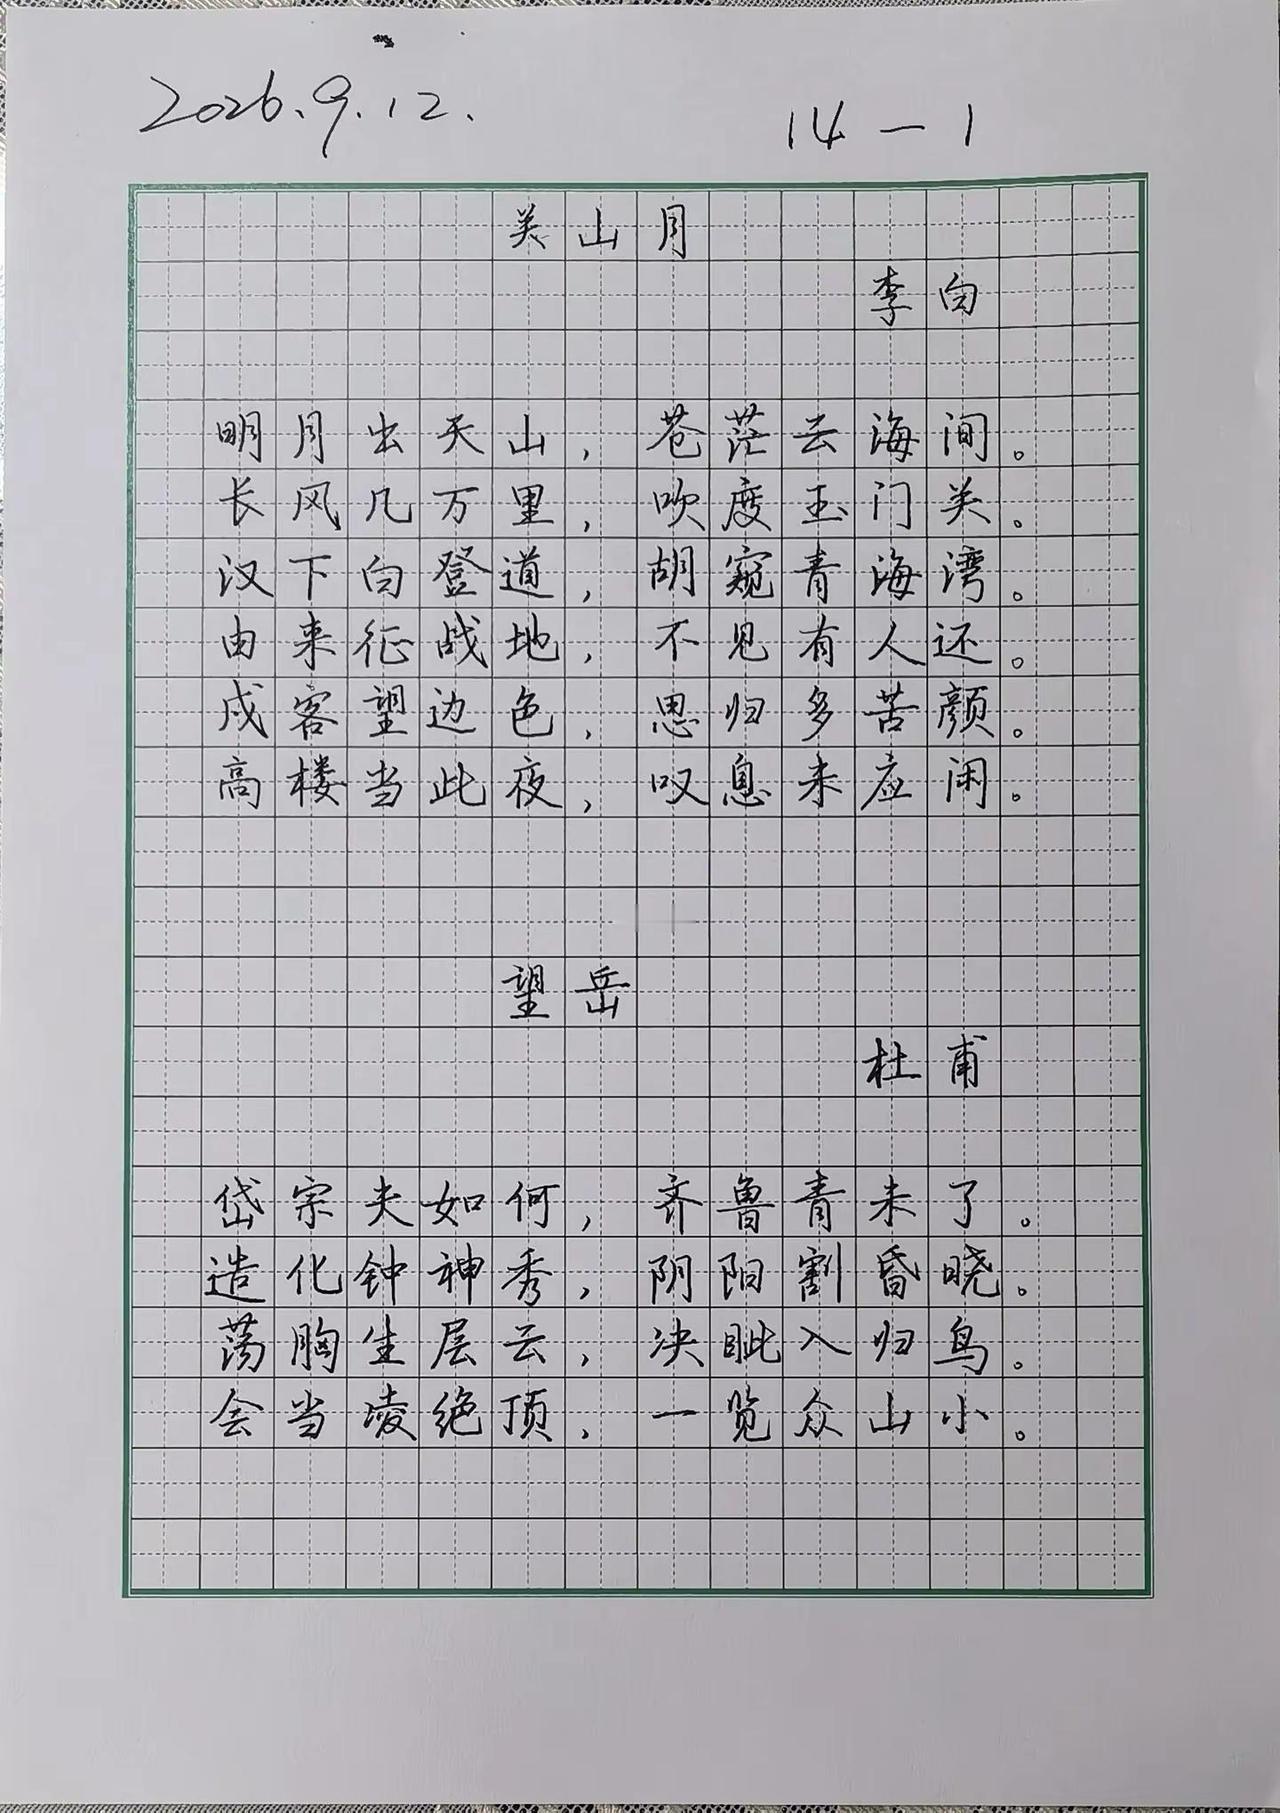 2026.9.12. 14-1
关山月
李白
明月出天山，苍茫云海间。
长风几万里，吹度玉门关。
汉下白登道，胡窥青海湾。
由来征战地，不见有人还。
戍客望边色，思归多苦颜。
高楼当此夜，叹息未应闲。
望岳
杜甫
岱宗夫如何，齐鲁青未了。
造化钟神秀，阴阳割昏晓。
荡胸生层云，决眦入归鸟。
会当凌绝顶，一览众山小。